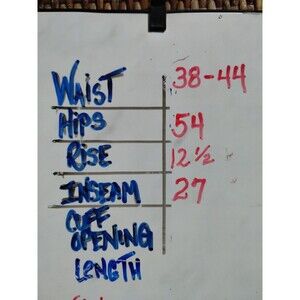 WAIST 38-44
HIPS 54
RISE 12 1/2
INSEAM 27
CUFF
OPENING
LENGTH